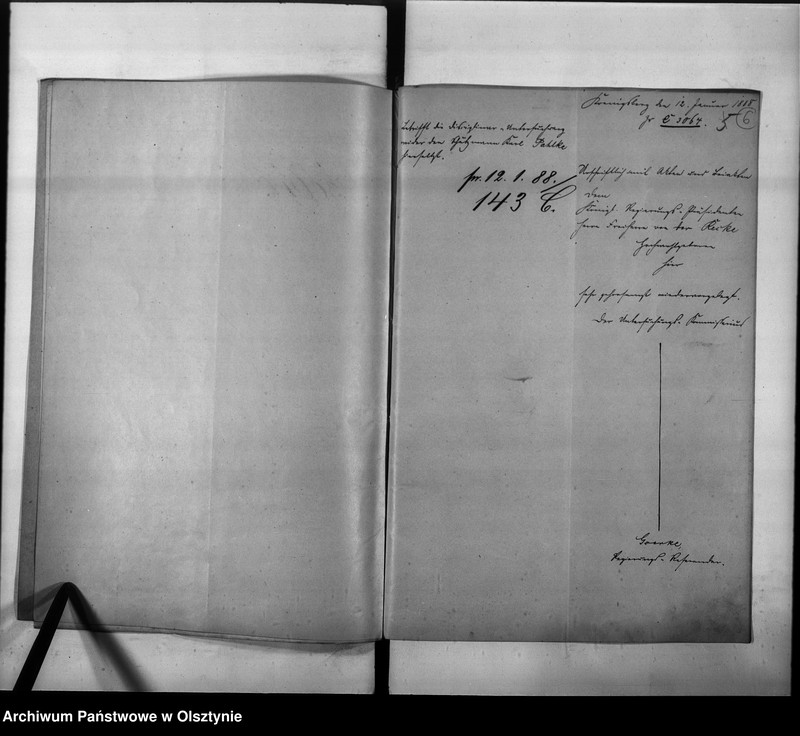 Koenigsberg den 12. Januar 1888
Nr C 3864.
6
Betrifft die Disciplinar-Untersuchung
wider den Schutzmann Karl Pahlke
hierselbst.
pr. 12. 1. 88.
143 C.
Urschriftlich mit Akten und Beiakten
dem
Königl. Regierungs-Präsidenten
Herrn Freiherrn von der Recke
Hochwohlgeboren
hier
sehr gehorsamst wiedervorgelegt.
Der Untersuchungs-Kommissarius
Goericke,
Regierungs-Referendar.
Archiwum Państwowe w Olsztynie